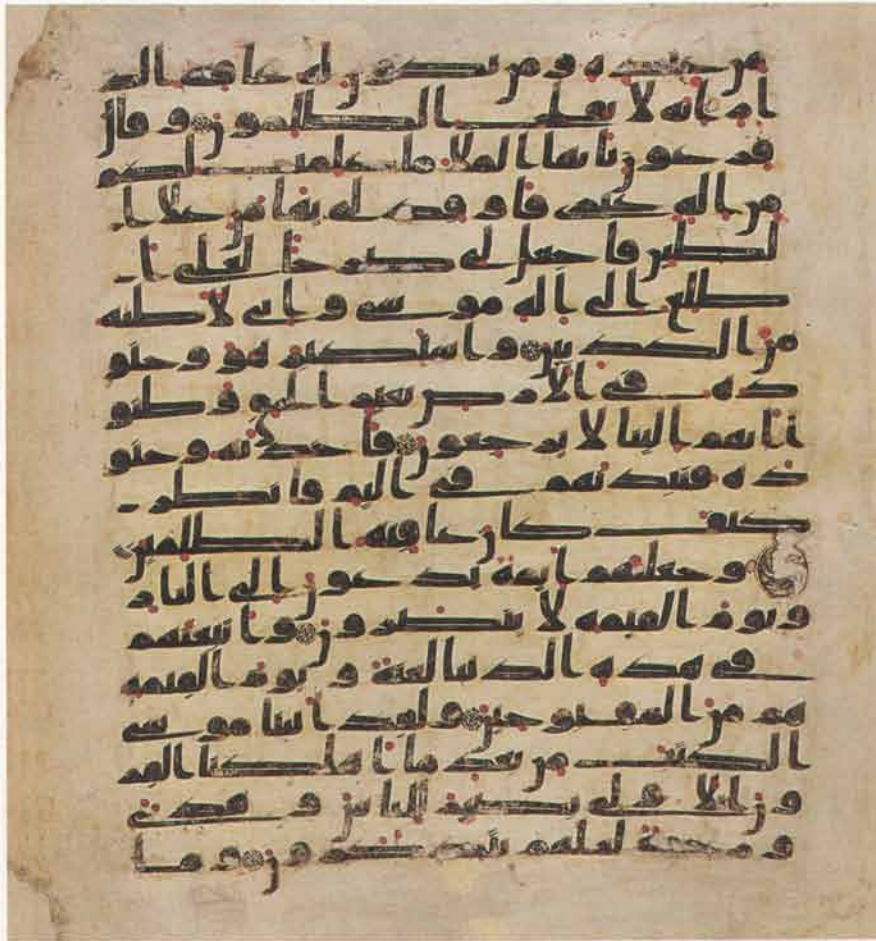 من عنده ومن تكون له عاقبة الد
ار انه لا يفلح الظلمون وقال
فرعون يايها الملا ما علمت لكم
من اله غيري فاوقد لي يهامن علا ا
لطين فاجعل لي صرحا لعلي ا
طلع الى اله موسى واني لاظنه
من الكذبين واستكبر هو وجنو
ده في الارض بغير الحق وظنو
ا انهم الينا لا يرجعون فاخذنه وجنو
ده فنبذنهم في اليم فانظر
كيف كان عاقبة الظلمين
وجعلنهم ايمة يدعون الى النار
ويوم القيمة لا ينصرون واتبعنهم
في هذه الدنيا لعنة ويوم القيمة
هم من المقبوحين ولقد اتينا موسى
الكتب من بعد ما اهلكنا القر
ون الاولى بصير للناس وهدى
ورحمة لعلهم يتذكرون وما